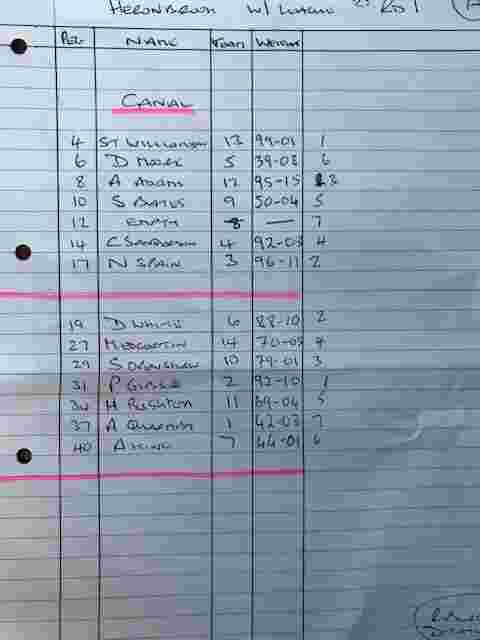 HERONBROOK W/
PEG NAME TEAM WEIGHT
CANAL
4 ST WILLIAMSON 13 99-01 1
6 D 5 39-08 6
8 A ADAMS 12 95-15 3
10 S BATES 9 50-04 5
12 EMPTY 8 — 7
14 C 4 92-03 4
17 N SPAIN 3 96-11 2
19 D WHITE 6 88-10 2
27 14 70-05 4
29 S 10 79-01 3
31 P 2 92-10 1
34 H RUSHTON 11 69-04 5
37 A 1 42-03 7
40 A KING 7 44-01 6